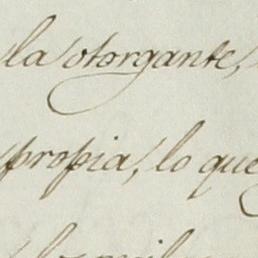 la otorgante,
propia, lo que